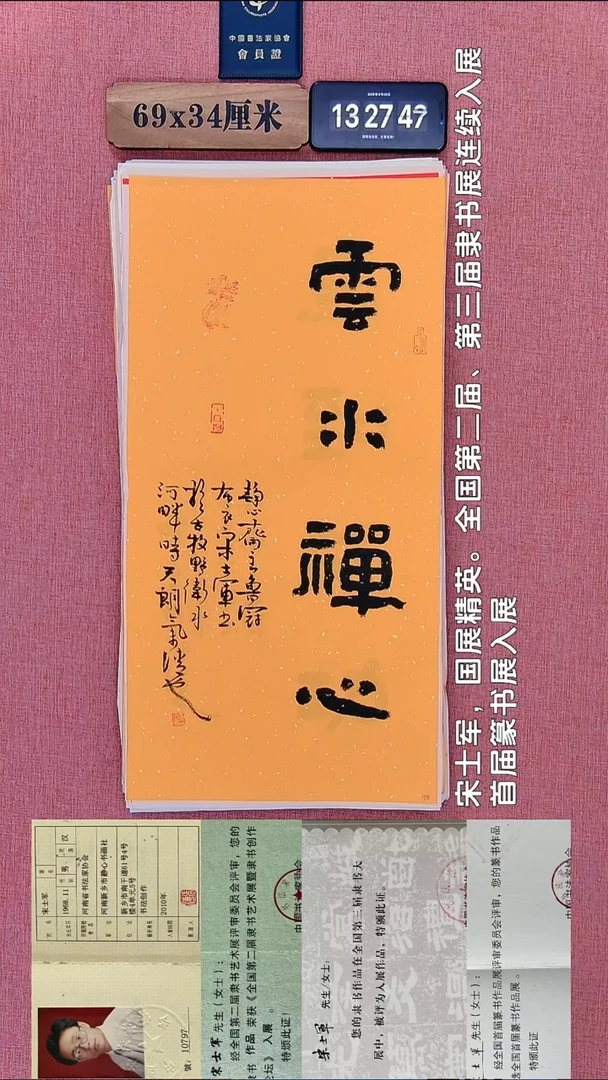 中國書法家協會
會員證
69x34厘米
13 27 47
雲水禪心
静心齋主
布衣宋士軍書
於古牧野衛水
河畔時天朗氣清也
宋士军，国展精英。全国第二届、第三届隶书展连续入展
首届篆书展入展
宋士军
1968.11 男 汉
河南省书法家协会
河南新乡市静心书画社
新乡市南干道61号4号
楼4单元5号
书法创作
2010年
號: 10797
宋士军先生（女士）：
经全国第二届隶书艺术展评审委员会评审，您的
书 作品 荣获《全国第二届隶书艺术展暨隶书创作
论坛》入展 。
特颁此证！
宋士军 先生/女士：
您的隶书作品在全国第三届隶书大
展中，被评为入展作品，特颁此证。
士军 先生（女士）：
经全国首届篆书作品展评审委员会评审，您的篆书作品
选全国首届篆书作品展。
特颁此证